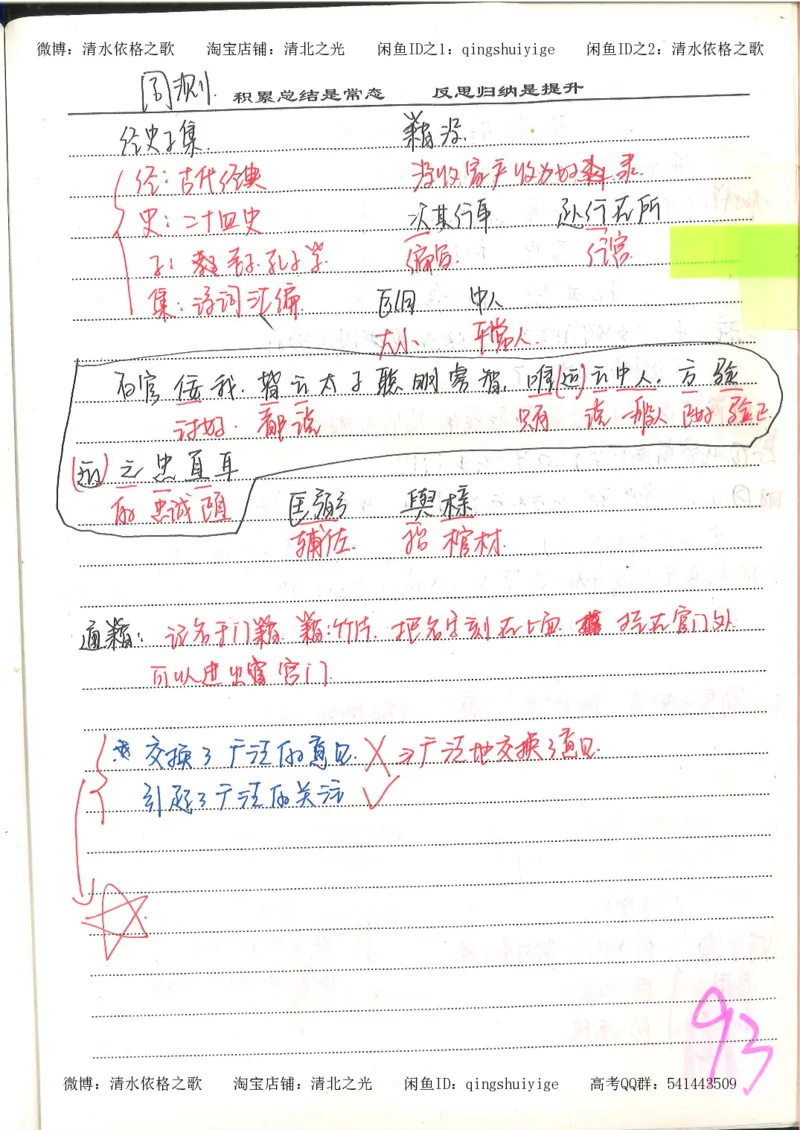 微博：清水依格之歌 淘宝店铺：清北之光 闲鱼ID之1：qingshuiyige 闲鱼ID之2：清水依格之歌
周测 积累总结是常态 反思归纳是提升
经史子集 籍没
经：古代经典 没收家产收为 录
史：二十四史 次其行事 赴行在所
子： 孔子学 编写 行宫
集：诗词汇编 臣 中人
大小 平常人
百官佞我，皆云太子聪明睿智，唯(远)云中人，方验
讨好 都说 只有 说 一般人 正好 验正
(远)之忠直耳
的 忠诚
匡弼 舆榇
辅佐 抬 棺材
通籍：记名于门籍 籍：竹片 把名字刻在上面 挂在宫门处
可以进出 宫门
交换了广泛的意见 ✗ ⇒广泛地交换了意见
引起了广泛的关注 ✓
93
微博：清水依格之歌 淘宝店铺：清北之光 闲鱼ID：qingshuiyige 高考QQ群：541443509